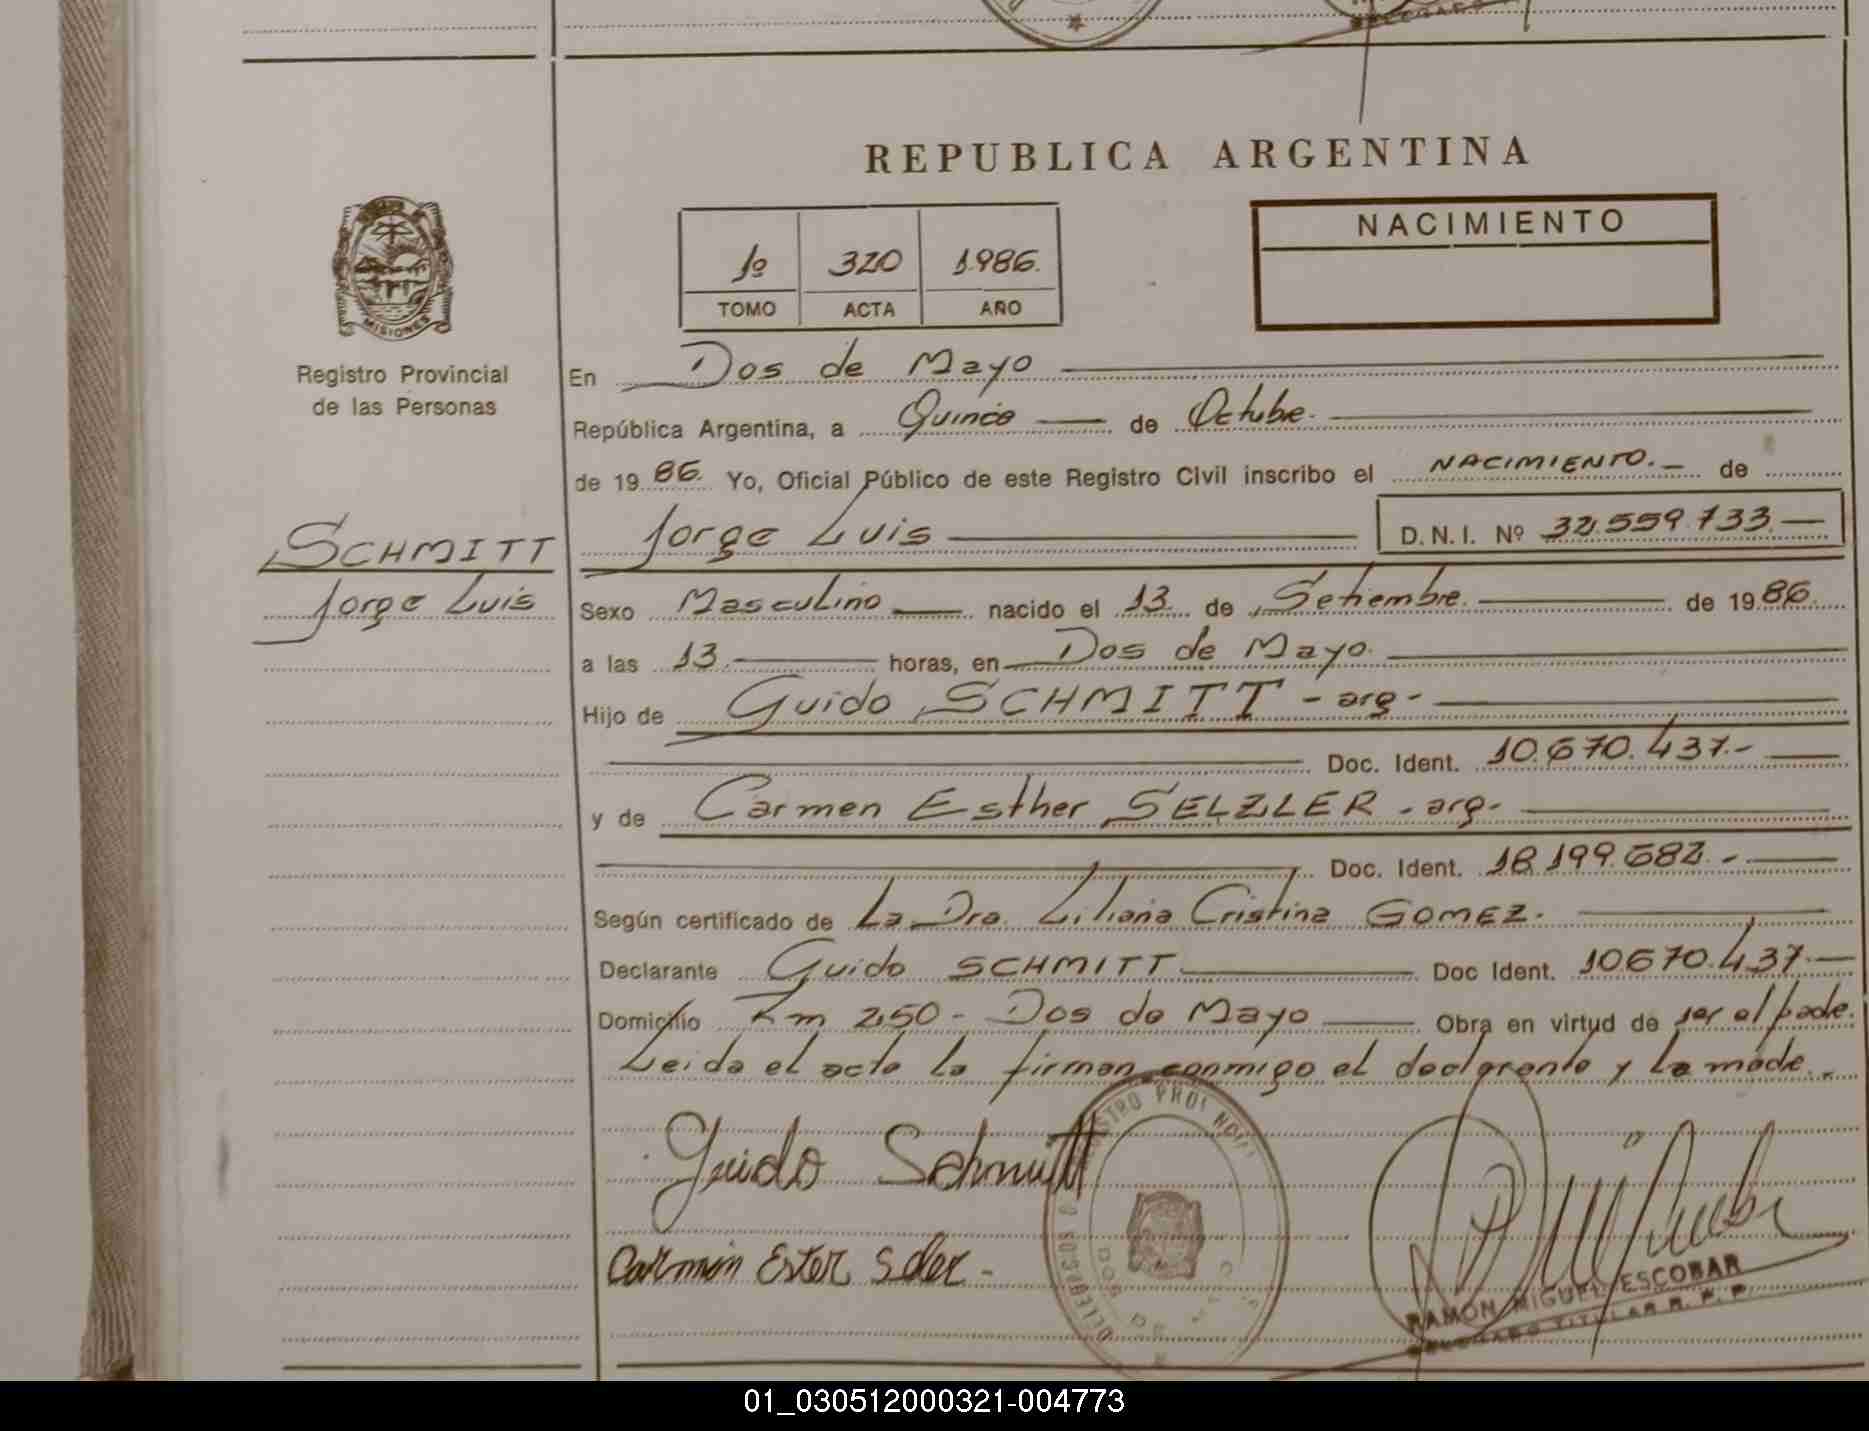 REPUBLICA ARGENTINA
NACIMIENTO
1º 320 1.986.
TOMO ACTA AÑO
MISIONES
Registro Provincial
de las Personas
En Dos de Mayo
República Argentina, a Quince de Octubre.
de 19 86. Yo, Oficial Público de este Registro Civil inscribo el NACIMIENTO. de
SCHMITT
Jorge Luis
Jorge Luis D.N.I. Nº 32.559.733.
Sexo Masculino nacido el 13 de Setiembre. de 19 86.
a las 13 horas, en Dos de Mayo.
Hijo de Guido SCHMITT - arg-
Doc. Ident. 10.670.437.-
y de Carmen Esther SELZLER - arg-
Doc. Ident. 18.199.682.-
Según certificado de La Dra. Liliana Cristina GOMEZ.
Declarante Guido SCHMITT Doc Ident. 10.670.437.
Domicilio Km 250 - Dos de Mayo Obra en virtud de ser el padre.
Leida el acta la firman conmigo el declarante y la madre.
Guido Schmitt
Carmen Ester
RAMON MIGUEL ESCOBAR
DELEGADO TITULAR R. P. P.
01_030512000321-004773